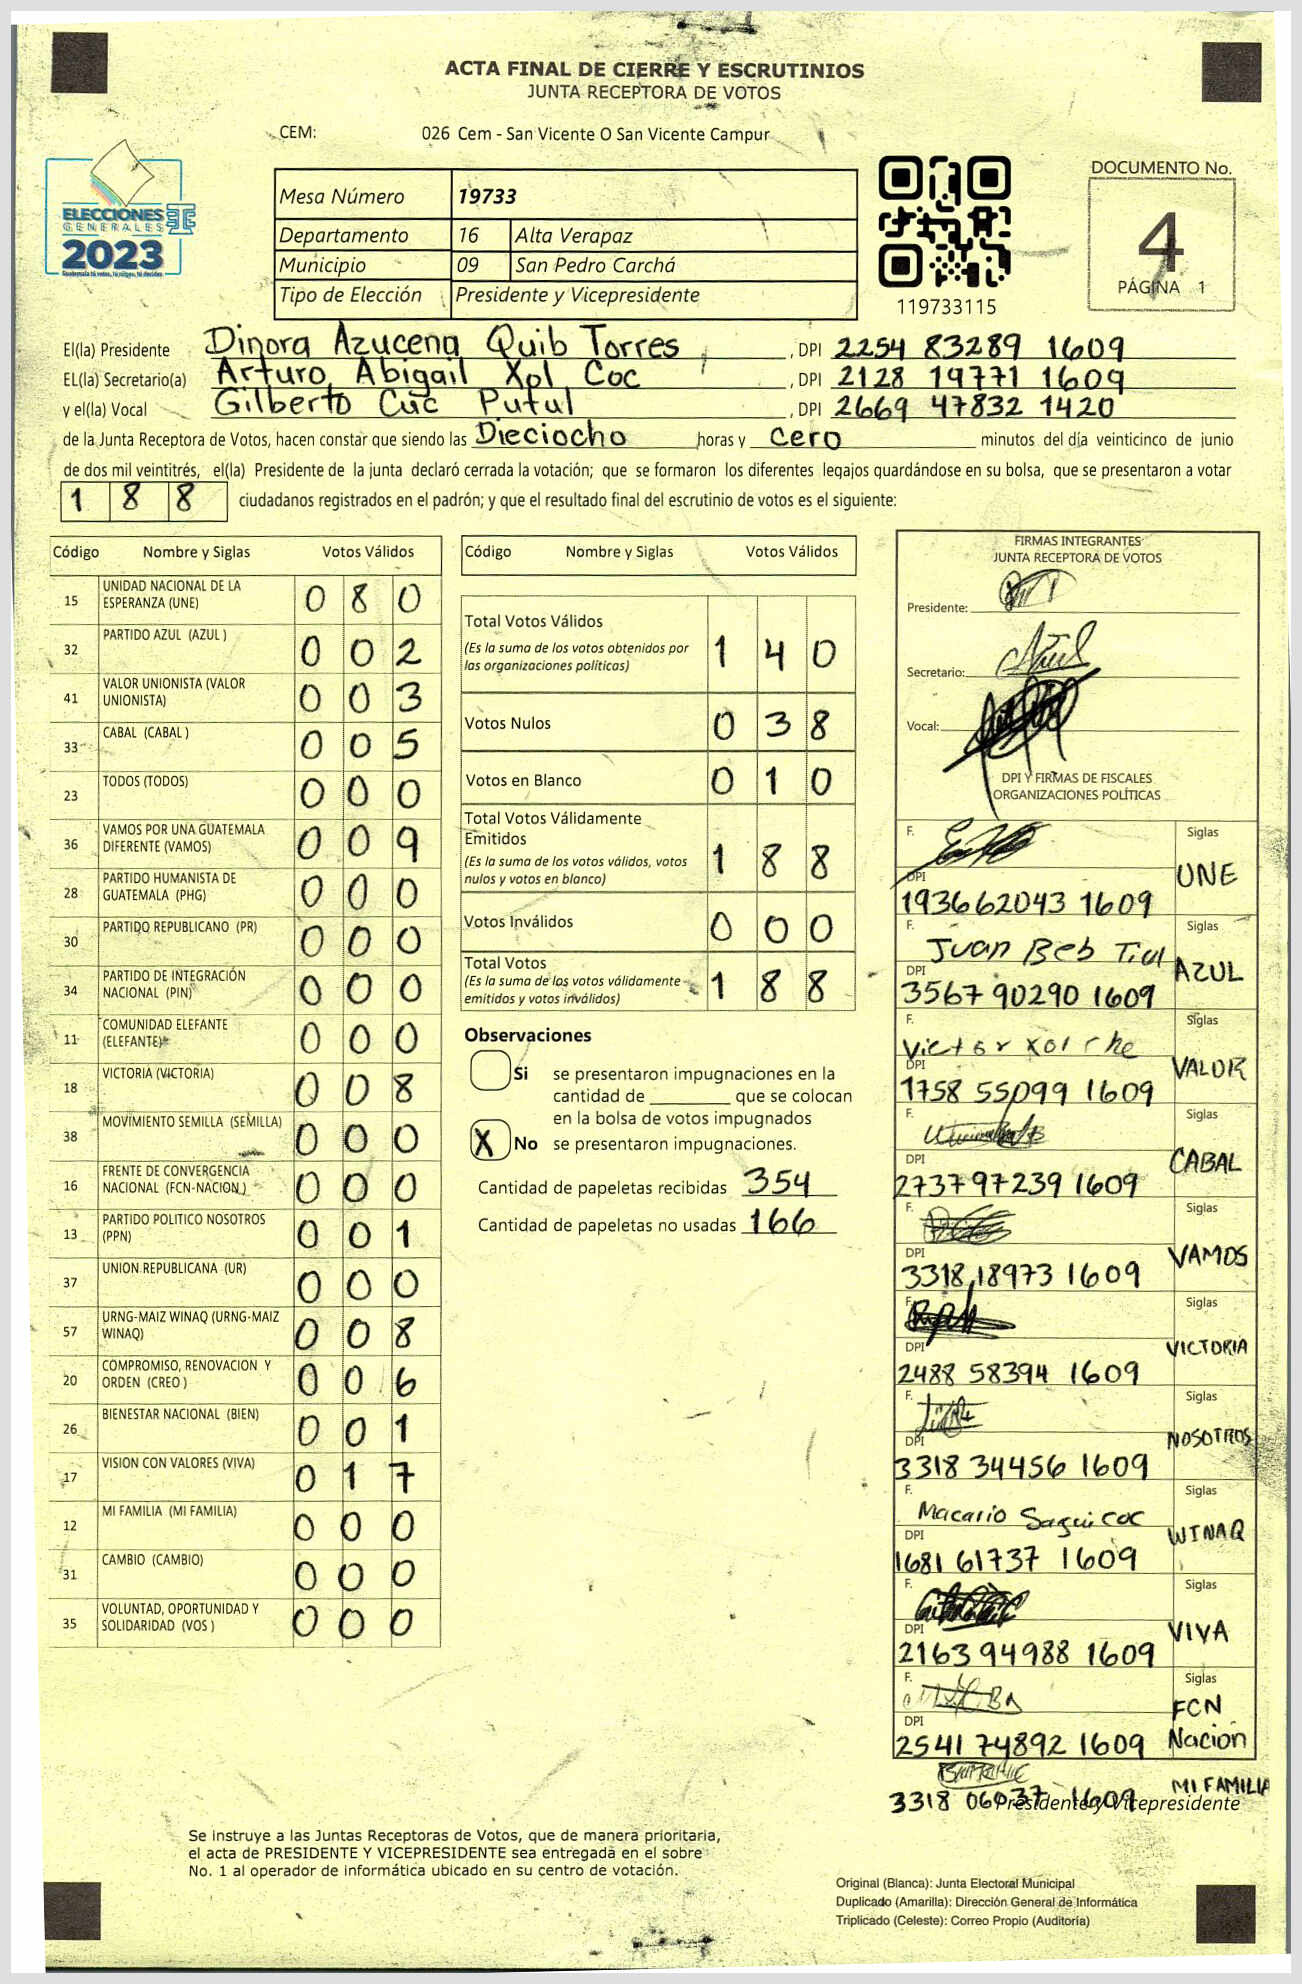 ACTA FINAL DE CIERRE Y ESCRUTINIOS
JUNTA RECEPTORA DE VOTOS
CEM: 026 Cem - San Vicente O San Vicente Campur
ELECCIONES
GENERALES
2023
Guatemala tú votas, tú eliges, tú decides
Mesa Número 19733
Departamento 16 Alta Verapaz
Municipio 09 San Pedro Carchá
Tipo de Elección Presidente y Vicepresidente
119733115
DOCUMENTO No.
4
PÁGINA 1
El(la) Presidente Dinora Azucena Quib Torres, DPI 2254 83289 1609
EL(la) Secretario(a) Arturo Abigail Xol Coc, DPI 2128 19771 1609
y el(la) Vocal Gilberto Cuc Putul, DPI 2669 47832 1420
de la Junta Receptora de Votos, hacen constar que siendo las Dieciocho horas y cero minutos del día veinticinco de junio
de dos mil veintitrés, el(la) Presidente de la junta declaró cerrada la votación; que se formaron los diferentes legajos quardándose en su bolsa, que se presentaron a votar
1 8 8 ciudadanos registrados en el padrón; y que el resultado final del escrutinio de votos es el siguiente:
Código Nombre y Siglas Votos Válidos
15 UNIDAD NACIONAL DE LA ESPERANZA (UNE) 0 8 0
32 PARTIDO AZUL (AZUL ) 0 0 2
41 VALOR UNIONISTA (VALOR UNIONISTA) 0 0 3
33 CABAL (CABAL ) 0 0 5
23 TODOS (TODOS) 0 0 0
36 VAMOS POR UNA GUATEMALA DIFERENTE (VAMOS) 0 0 9
28 PARTIDO HUMANISTA DE GUATEMALA (PHG) 0 0 0
30 PARTIDO REPUBLICANO (PR) 0 0 0
34 PARTIDO DE INTEGRACIÓN NACIONAL (PIN) 0 0 0
11 COMUNIDAD ELEFANTE (ELEFANTE) 0 0 0
18 VICTORIA (VICTORIA) 0 0 8
38 MOVIMIENTO SEMILLA (SEMILLA) 0 0 0
16 FRENTE DE CONVERGENCIA NACIONAL (FCN-NACION ) 0 0 0
13 PARTIDO POLITICO NOSOTROS (PPN) 0 0 1
37 UNION REPUBLICANA (UR) 0 0 0
57 URNG-MAIZ WINAQ (URNG-MAIZ WINAQ) 0 0 8
20 COMPROMISO, RENOVACION Y ORDEN (CREO ) 0 0 6
26 BIENESTAR NACIONAL (BIEN) 0 0 1
17 VISION CON VALORES (VIVA) 0 1 7
12 MI FAMILIA (MI FAMILIA) 0 0 0
31 CAMBIO (CAMBIO) 0 0 0
35 VOLUNTAD, OPORTUNIDAD Y SOLIDARIDAD (VOS ) 0 0 0
Código Nombre y Siglas Votos Válidos
Total Votos Válidos
(Es la suma de los votos obtenidos por
las organizaciones políticas) 1 4 0
Votos Nulos 0 3 8
Votos en Blanco 0 1 0
Total Votos Válidamente
Emitidos
(Es la suma de los votos válidos, votos
nulos y votos en blanco) 1 8 8
Votos Inválidos 0 0 0
Total Votos
(Es la suma de los votos válidamente
emitidos y votos inválidos) 1 8 8
Observaciones
Si se presentaron impugnaciones en la
cantidad de ________ que se colocan
en la bolsa de votos impugnados
X No se presentaron impugnaciones.
Cantidad de papeletas recibidas 354
Cantidad de papeletas no usadas 166
FIRMAS INTEGRANTES
JUNTA RECEPTORA DE VOTOS
Presidente:
Secretario:
Vocal:
DPI Y FIRMAS DE FISCALES
ORGANIZACIONES POLÍTICAS
F. Siglas
DPI UNE
193662043 1609
F. Juan Beb Tiul Siglas
DPI AZUL
3567 90290 1609
F. Victor Xol che Siglas
DPI VALOR
1758 55099 1609
F. Siglas
DPI CABAL
2737 97239 1609
F. Siglas
DPI VAMOS
3318 18973 1609
F. Siglas
DPI VICTORIA
2488 58394 1609
F. Siglas
DPI NOSOTROS
3318 34456 1609
F. Macario Saqui coc Siglas
DPI WINAQ
1681 61737 1609
F. Siglas
DPI VIVA
2163 94988 1609
F. Siglas
DPI FCN Nación
2541 74892 1609
3318 06037 1609 MI FAMILIA
Presidente y Vicepresidente
Se instruye a las Juntas Receptoras de Votos, que de manera prioritaria,
el acta de PRESIDENTE Y VICEPRESIDENTE sea entregada en el sobre
No. 1 al operador de informática ubicado en su centro de votación.
Original (Blanca): Junta Electoral Municipal
Duplicado (Amarilla): Dirección General de Informática
Triplicado (Celeste): Correo Propio (Auditoría)